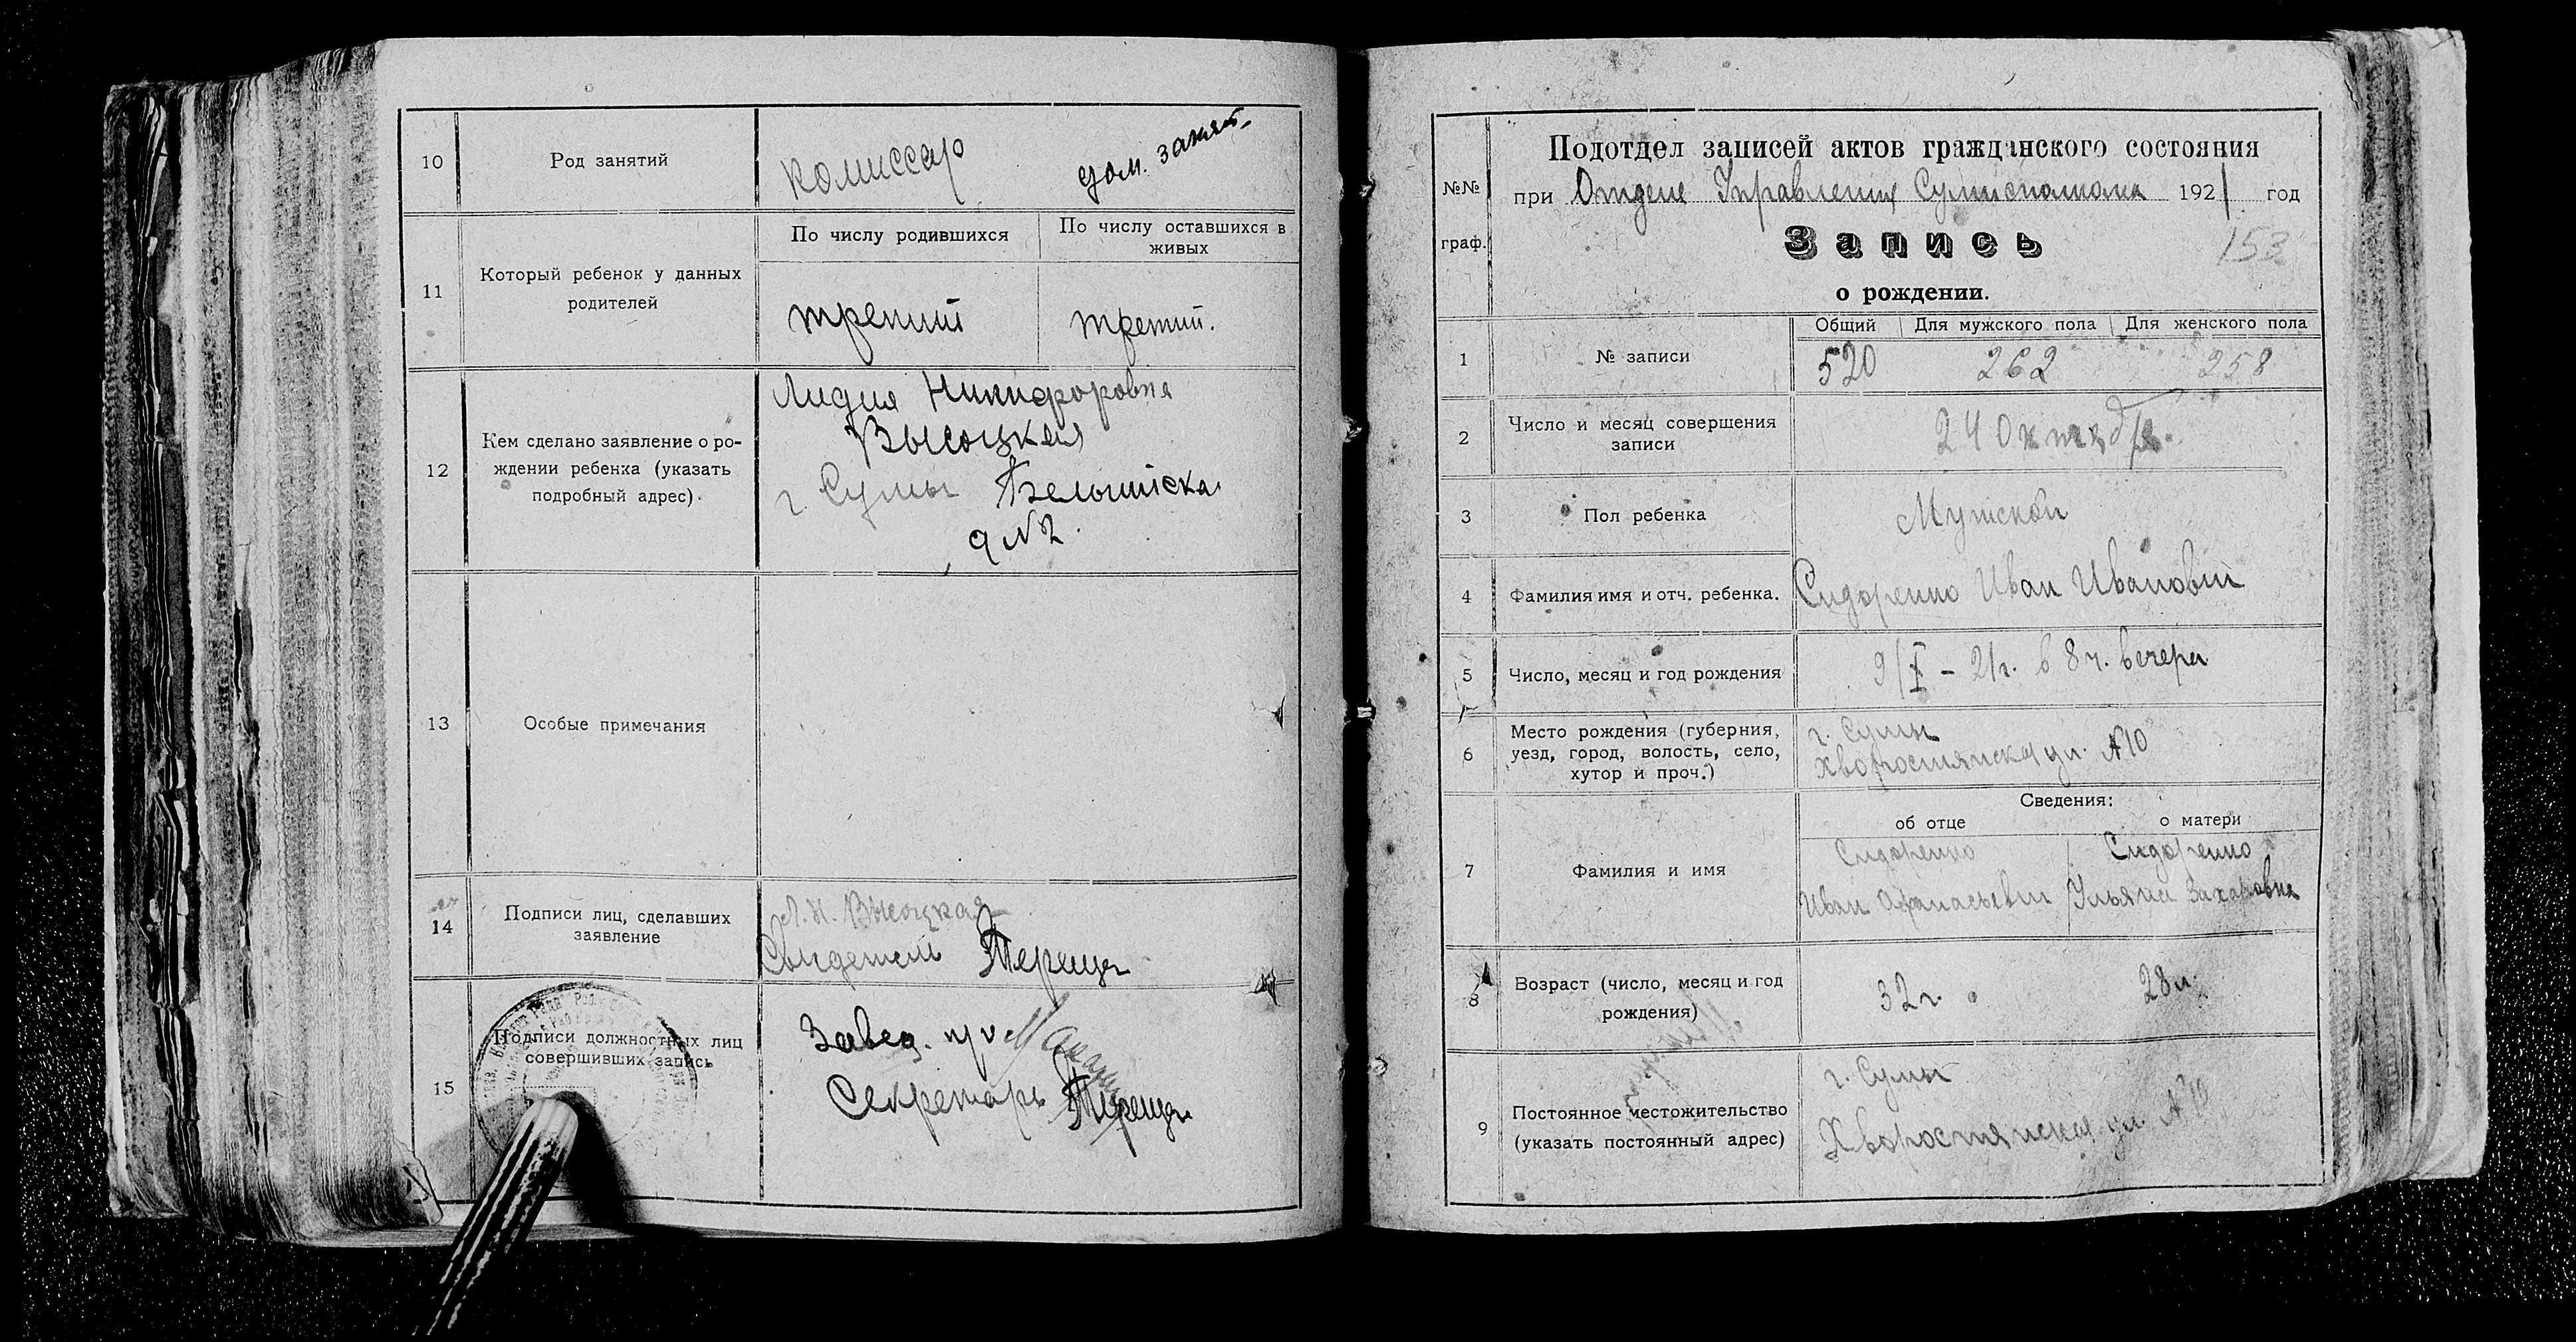 10
Род занятий
комиссар
дом. занят.
11
Который ребенок у данных
родителей
По числу родившихся
По числу оставшихся в
живых
третий
третий.
12
Кем сделано заявление о ро-
ждении ребенка (указать
подробный адрес).
Лидия Никифоровна
Высоцкая
г. Сумы
д №2.
13
Особые примечания
14
Подписи лиц, сделавших
заявление
Л. Н. Высоцкая
Свидетели
15
Подписи должностных лиц
совершивших запись
Завед. п/о
Секретарь
№№
граф.
Подотдел записей актов гражданского состояния
при Отделе Управления Сумисполкома 1921 год
Запись
153
о рождении.
1
№ записи
Общий
Для мужского пола
Для женского пола
520
262
258
2
Число и месяц совершения
записи
24 октября.
3
Пол ребенка
Мужской
4
Фамилия имя и отч. ребенка.
Сидоренко Иван Иванович
5
Число, месяц и год рождения
9/X – 21г. в 8 ч. вечера
6
Место рождения (губерния,
уезд, город, волость, село,
хутор и проч.)
г. Сумы
Хворостянская ул. №10
7
Фамилия и имя
Сведения:
об отце
о матери
Сидоренко
Сидоренко
Иван Афанасьевич
Ульяна Захаровна
8
Возраст (число, месяц и год
рождения)
32 г.
28 л.
9
Постоянное местожительство
(указать постоянный адрес)
г. Сумы
Хворостянская ул. №10